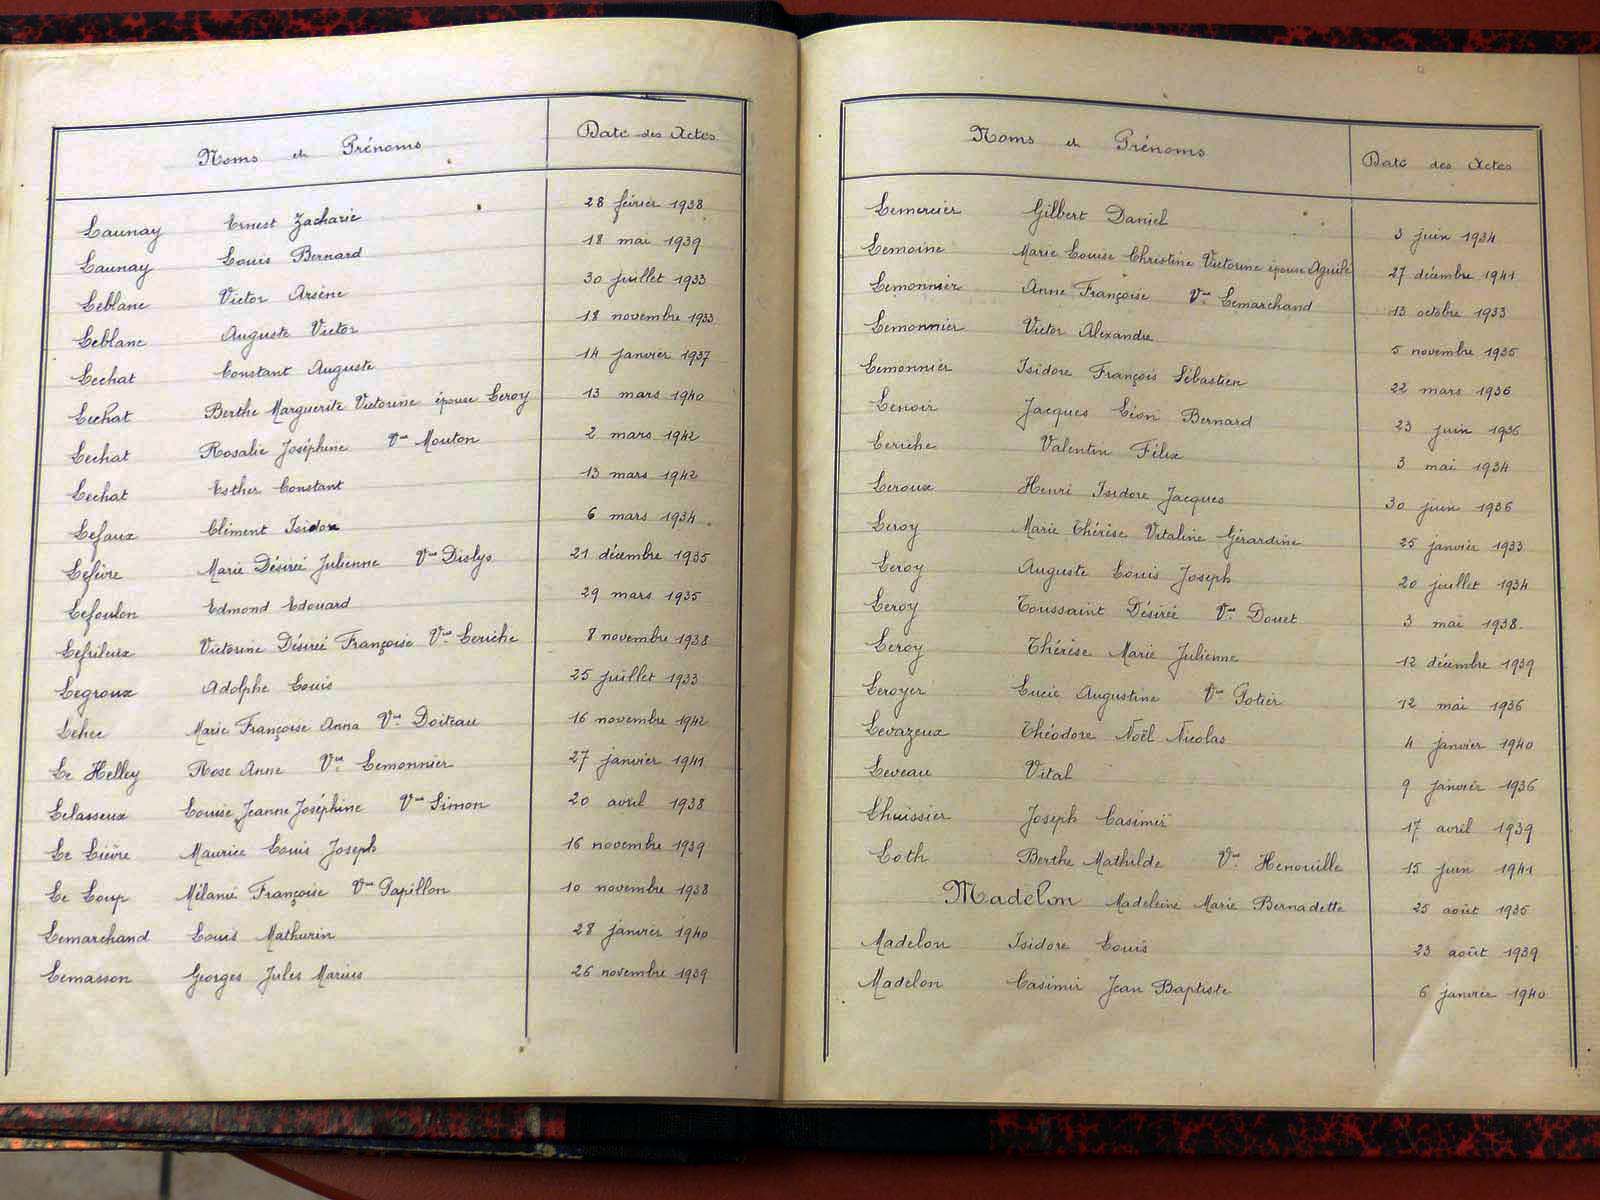 Noms et Prénoms Date des Actes
Launay Ernest Zacharie 28 février 1938
Launay Louis Bernard 18 mai 1939
Leblanc Victor Arsène 30 juillet 1933
Leblanc Auguste Victor 18 novembre 1933
Lechat Constant Auguste 14 janvier 1937
Lechat Berthe Marguerite Victorine épouse Leroy 13 mars 1940
Lechat Rosalie Joséphine Vve Mouton 2 mars 1942
Lechat Esther Constant 13 mars 1942
Lefaux Clément Isidore 6 mars 1934
Lefèvre Marie Désirée Julienne Vve Dislys 21 décembre 1935
Lefoulon Edmond Edouard 29 mars 1935
Lefrileux Victorine Désirée Françoise Vve Leriche 8 novembre 1938
Legroux Adolphe Louis 25 juillet 1933
Lehec Marie Françoise Anna Vve Doiteau 16 novembre 1942
Le Helley Rose Anne Vve Lemonnier 27 janvier 1941
Lelasseux Louise Jeanne Joséphine Vve Simon 20 avril 1938
Le Lièvre Maurice Louis Joseph 16 novembre 1939
Le Loup Mélanie Françoise Vve Papillon 10 novembre 1938
Lemarchand Louis Mathurin 28 janvier 1940
Lemasson Georges Jules Marius 26 novembre 1939
Noms et Prénoms Date des Actes
Lemercier Gilbert Daniel 3 juin 1934
Lemoine Marie Louise Christine Victorine épouse Aguilé 27 décembre 1941
Lemonnier Anne Françoise Vve Lemarchand 13 octobre 1933
Lemonnier Victor Alexandre 5 novembre 1935
Lemonnier Isidore François Sébastien 22 mars 1936
Lenoir Jacques Léon Bernard 23 juin 1936
Leriche Valentin Félix 3 mai 1934
Leroux Henri Isidore Jacques 30 juin 1936
Leroy Marie Thérèse Vitaline Gérardine 25 janvier 1933
Leroy Auguste Louis Joseph 20 juillet 1934
Leroy Toussaint Désirée Vve Douet 3 mai 1938
Leroy Thérèse Marie Julienne 12 décembre 1939
Leroyer Lucie Augustine Vve Potier 12 mai 1936
Levazeux Théodore Noël Nicolas 4 janvier 1940
Leveau Vital 9 janvier 1936
Lhuissier Joseph Casimir 17 avril 1939
Loth Berthe Mathilde Vve Henouille 15 juin 1941
Madelon Madeleine Marie Bernadette 25 août 1935
Madelon Isidore Louis 23 août 1939
Madelon Casimir Jean Baptiste 6 janvier 1940